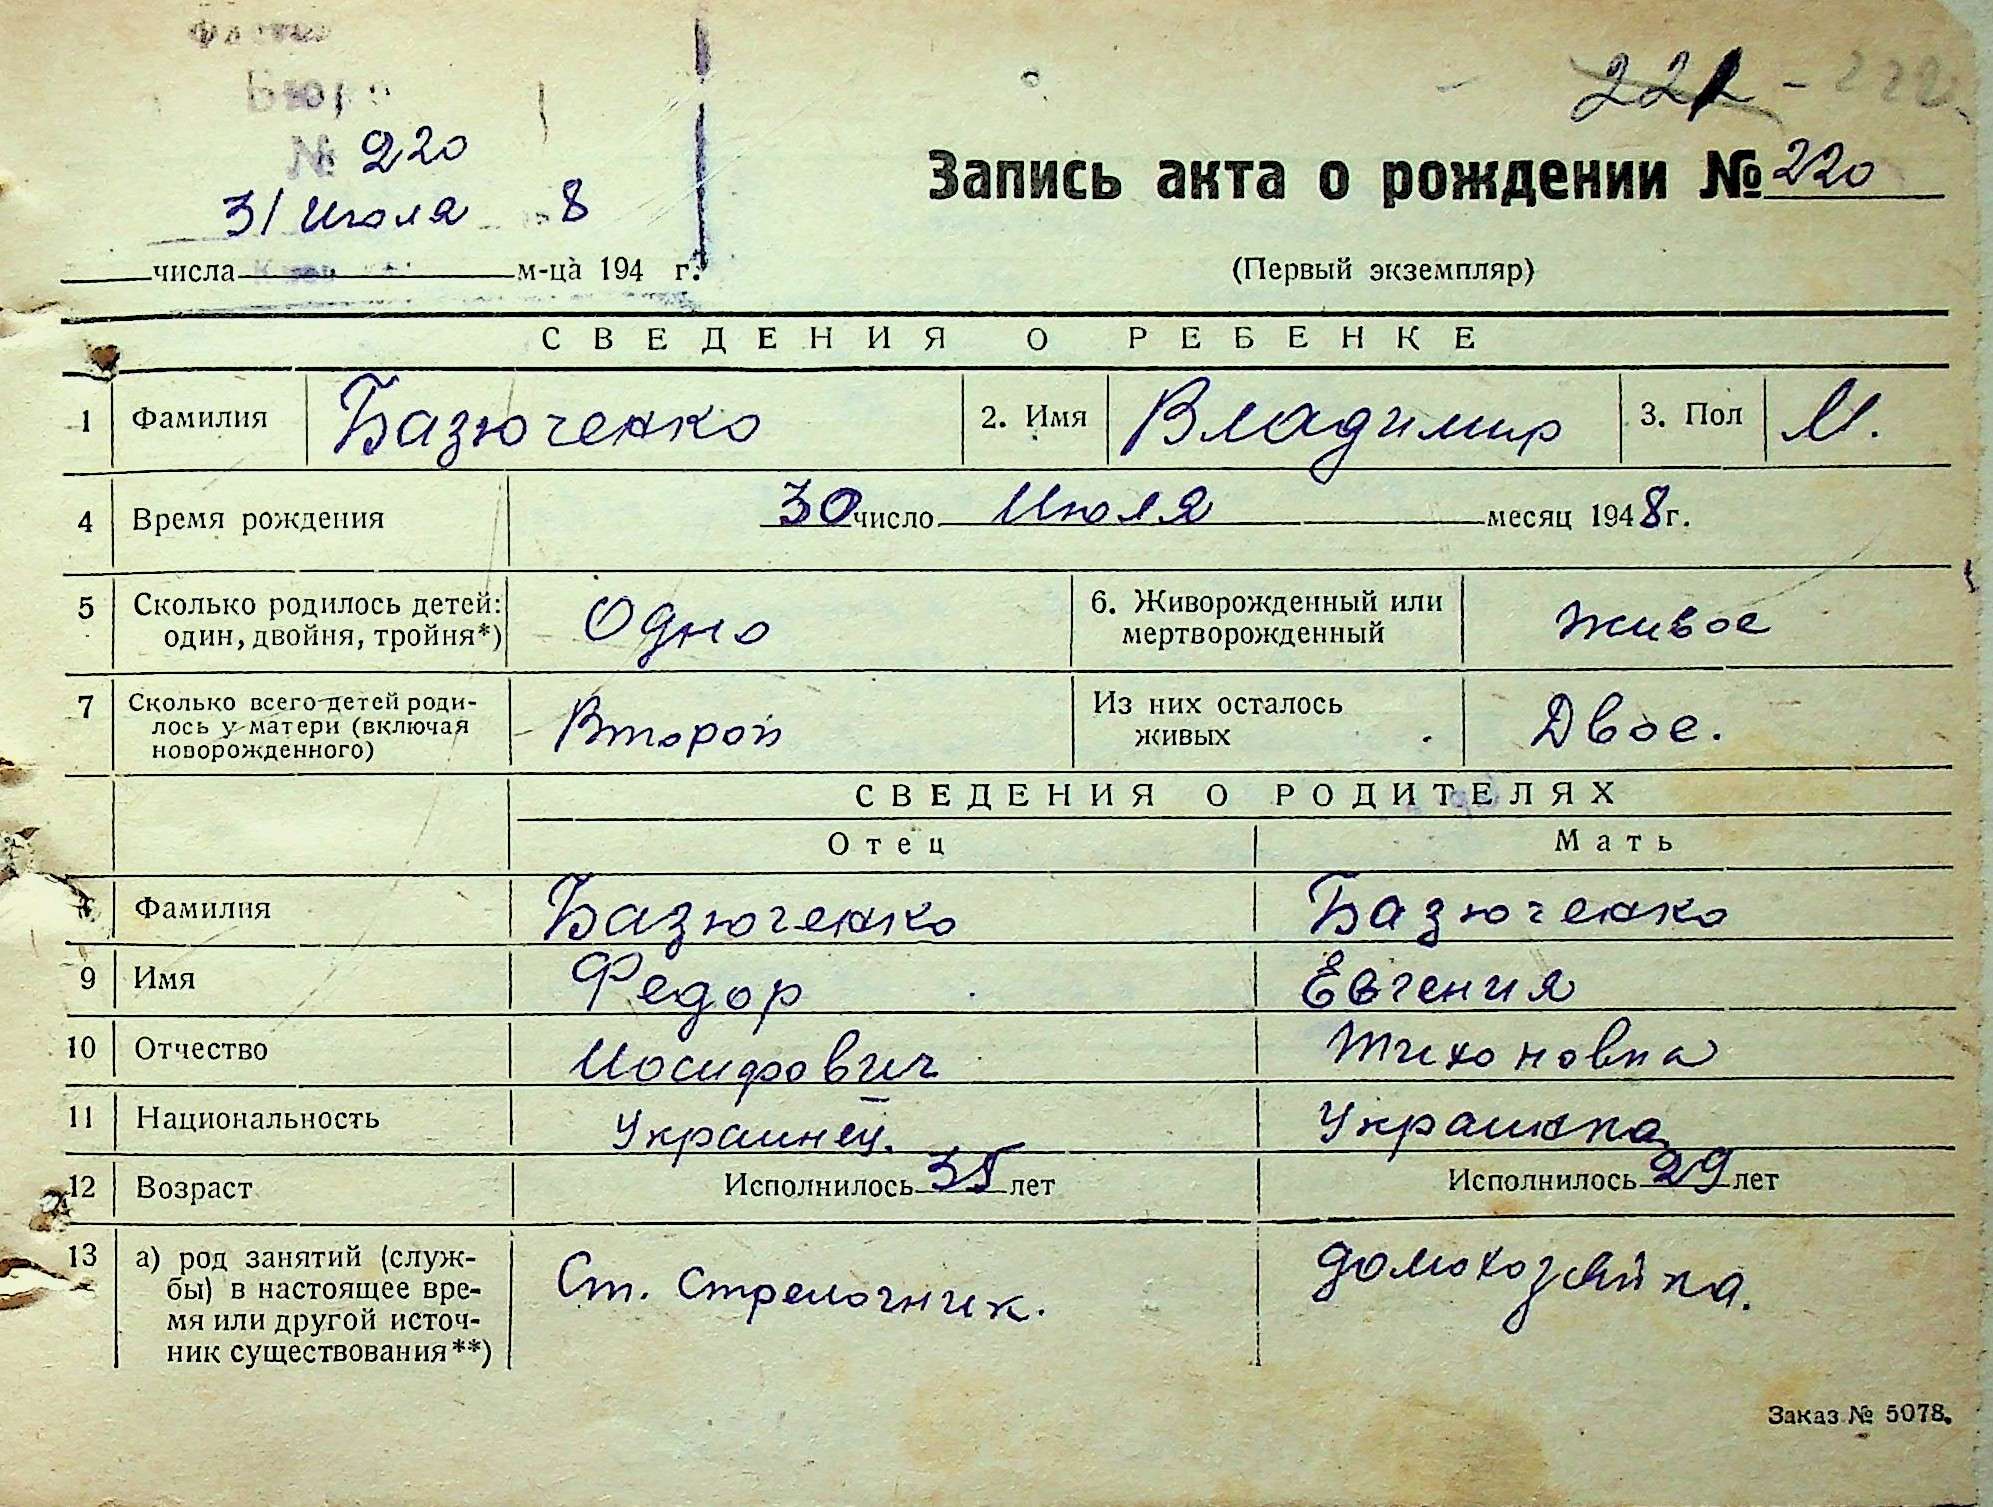 221 - 222
Бюро
№ 220
31 Июля 8
числа м-ца 194 г.
Запись акта о рождении № 220
(Первый экземпляр)
СВЕДЕНИЯ О РЕБЕНКЕ
1 Фамилия Базюченко 2. Имя Владимир 3. Пол М.
4 Время рождения 30 число Июля месяц 1948 г.
5 Сколько родилось детей: один, двойня, тройня*) Одно 6. Живорожденный или мертворожденный живое
7 Сколько всего детей родилось у матери (включая новорожденного) Второй Из них осталось живых Двое.
СВЕДЕНИЯ О РОДИТЕЛЯХ
Отец Мать
Фамилия Базюченко Базюченко
9 Имя Федор Евгения
10 Отчество Иосифович Тихоновна
11 Национальность Украинец. Украинка
12 Возраст Исполнилось 35 лет Исполнилось 29 лет
13 а) род занятий (служ-
бы) в настоящее вре-
мя или другой источ-
ник существования**)
Ст. Стрелочник. домохозяйка.
Заказ № 5078.